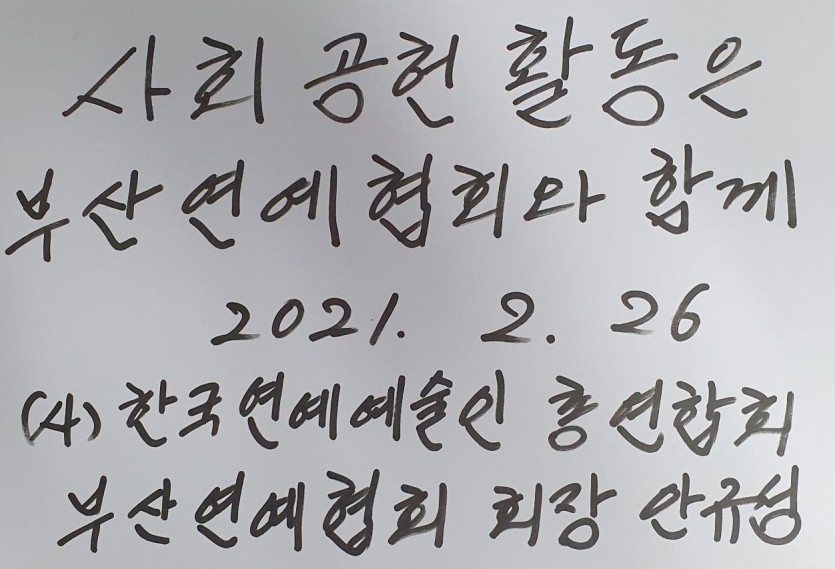 사회 공헌 활동은
부산연예협회와 함께
2021. 2. 26
(사) 한국연예예술인 총연합회
부산연예협회 회장 안규성